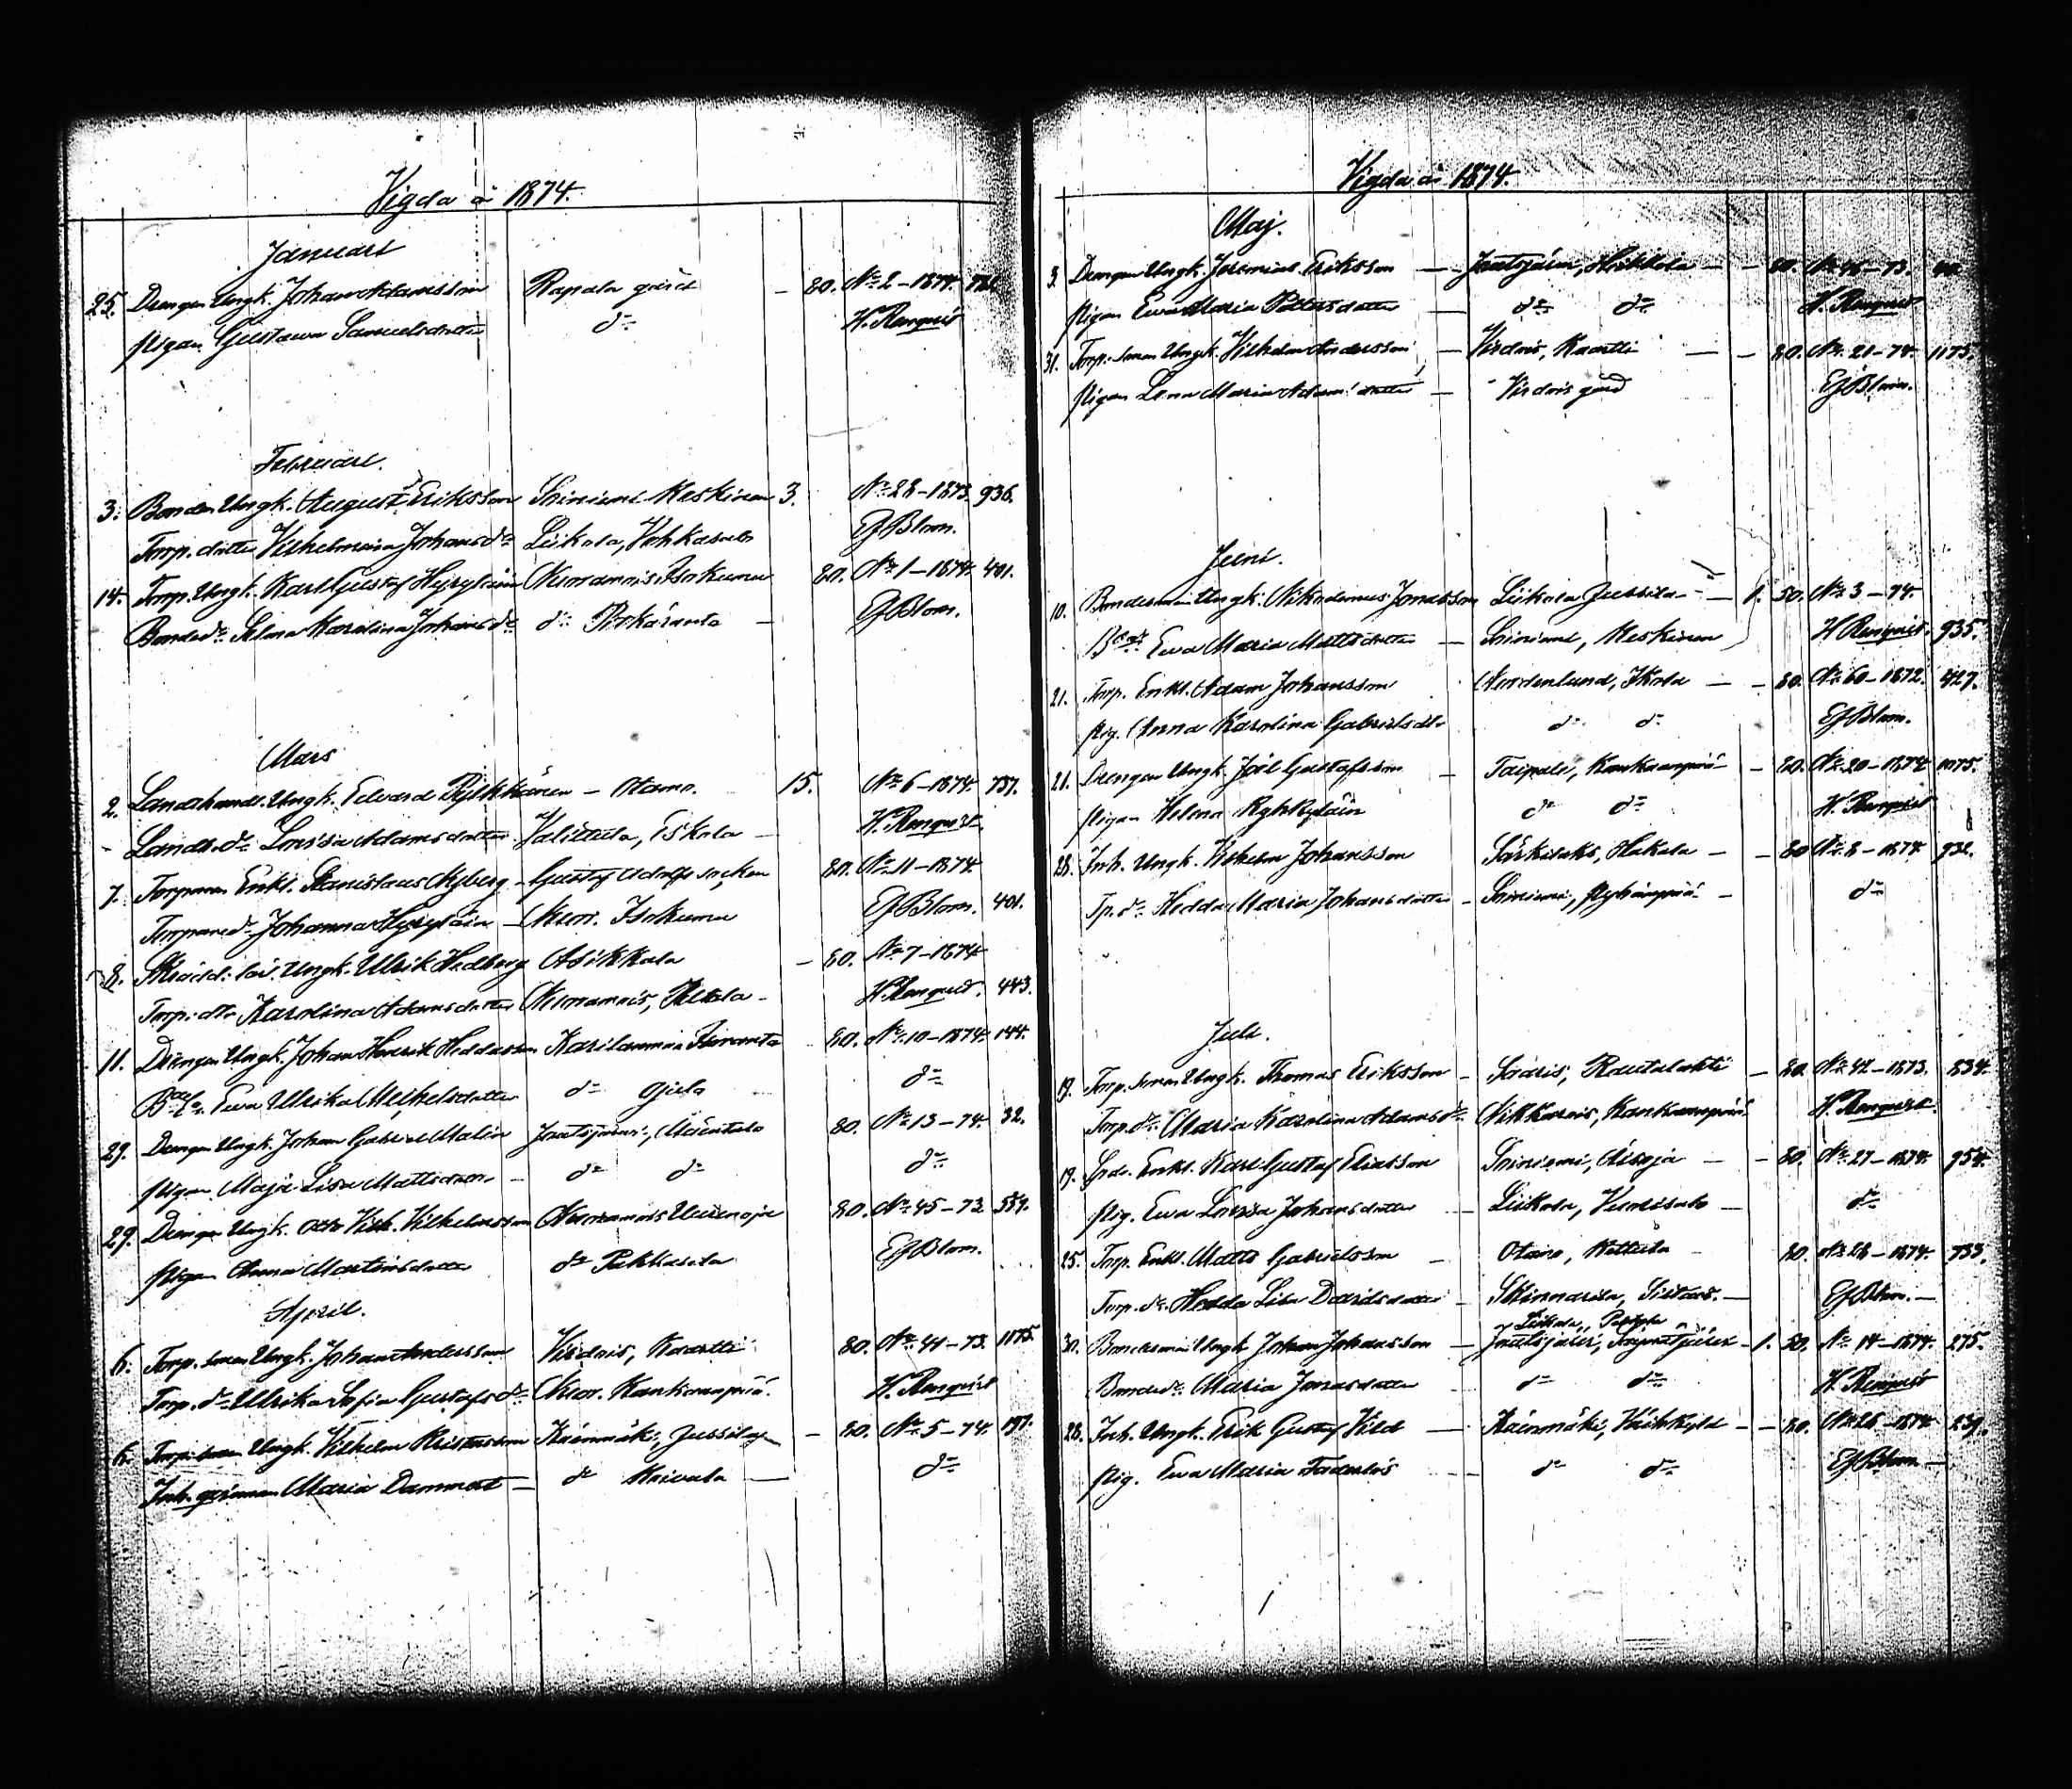 Vigda år 1874.
Januari
25. Drengen Ungk. Johan Adamsson Rapala gård – 80. No 2 – 1874.
Pigan Gustava Samuelsdotter do H. Renquist
Februari.
3. Bonden Ungk. August Eriksson Soiniemi Keskinen 3. No 28 – 1873. 936.
Torp. dotter Vilhelmina Johansdr Leikola, EfBlom.
14. Torp. Ungk. Karl Gustaf Nurmannis Isokumu 80. No 1 – 1874. 401.
Bondedr Selma Karolina Johansdr do – EfBlom.
Mars
2. Landthandl. Ungk. Edvard Pylkkänen – Otamo. 15. No 6 – 1874. 737.
Landb. dr Lovisa Adamsdotter Valittula, Eskola – H. Renquist.
7. Torparen Enkl. Stanislaus Nyberg – Gustaf Adolfs socken 80. No 11 – 1874.
Torparedr Johanna – Nurm. Isokumu EfBlom. 401.
8. Ungk. Ulrik Hedberg Asikkala – 80. No 7 – 1874
Torp. dr Karolina Adamsdotter Nurmannis, – H. Renquist. 443.
11. Drengen Ungk. Johan Henrik Karilanmaa 80. No 10 – 1874. 144.
Eva Ulrika Michelsdotter do do
29. Drengen Ungk. Johan Gabriel Malin Jautsjärvi, Mäentalo 80. No 13 – 74. 32.
Pigan Maja Lisa Mattsdotter – do do do
29. Drengen Ungk. Otto Vilh. Vilhelmsson Nurmannis 80. No 45 – 73.
Pigan Anna Martinsdotter do Pekkasela EfBlom.
April.
6. Torp. sonen Ungk. Johan Andersson Virdois, Kaartti 80. No 41 – 73. 1175.
Torp. dr Ulrika Sofia Gustafsdr Nurm. Kankaanpää. H. Renquist
6. Torp. Ungk. Vilhelm Kristersson Kainmäki, Jussila – 80. No 5 – 74. 197.
Inh. qvinnan Maria Dammert – do – do
Vigda år 1874.
Maj.
3. Drengen Ungk. Jeremias Eriksson – Jautsjärvi, Heikkola – – 80. No 46 – 73.
Pigan Eva Maria Pettersdotter – do do H. Renquist
31. Torp. sonen Ungk. Vilhelm Andersson – Virdois, Kaartti – – 80. No 21 – 74. 1175.
Pigan Lena Maria Adamsdotter – Virdois gård EfBlom.
Juni.
10. Bondeson Ungk. Nikodemus Jonasson Leikola Jussila – – 1. 50. No 3 – 74.
Eva Maria Mattsdotter – Soiniemi, Keskinen H Renquist. 935.
21. Torp. Enkl. Adam Johansson Nordenlund, Ikola – – 80. No 60 – 1872. 427.
Pig. Anna Karolina Gabrielsdr do do EfBlom.
21. Drengen Ungk. Joel Gustafsson – Taipale, Kankaanpää – 80. No 20 – 1874 1075.
Pigan Helena do do H. Renquist
28. Inh. Ungk. Vilhelm Johansson Särkilaks, Olakala – – 80 No 8 – 1874. 932.
Tp. dr Hedda Maria Johansdotter – Soiniemi, Pyhänpää – do
Juli.
19. Torp. sonen Ungk. Thomas Eriksson – Soaris, Rautalahti – 80. No 42 – 1873. 834.
Torp. dr Maria Karolina Adamsdr Nikkarois, Kankaanpää H. Renquist.
19. Enkl. Karl Gustaf Eliasson Soiniemi, – – 80. No 27 – 1874. 954.
Pig. Eva Lovisa Johansdotter – Leikola, – do
25. Torp. Enkl. Matts Gabrielsson – Otamo, Kettula 80. No 28 – 1874. 733.
Torp. dr Hedda Lisa Davidsdotter – Skinnarila, – EfBlom. –
Leikola,
30. Bondeson Ungk. Johan Johansson – Jautsjärvi, – 1. 50. No 14 – 1874. 275.
Bondedr Maria Jonasdotter – do do H. Renquist
28. Inh. Ungk. Erik Gustaf Vild – Kainmäki, – – 80. No 26 – 1874. 239.
Pig. Eva Maria Faderlös – do do EfBlom –